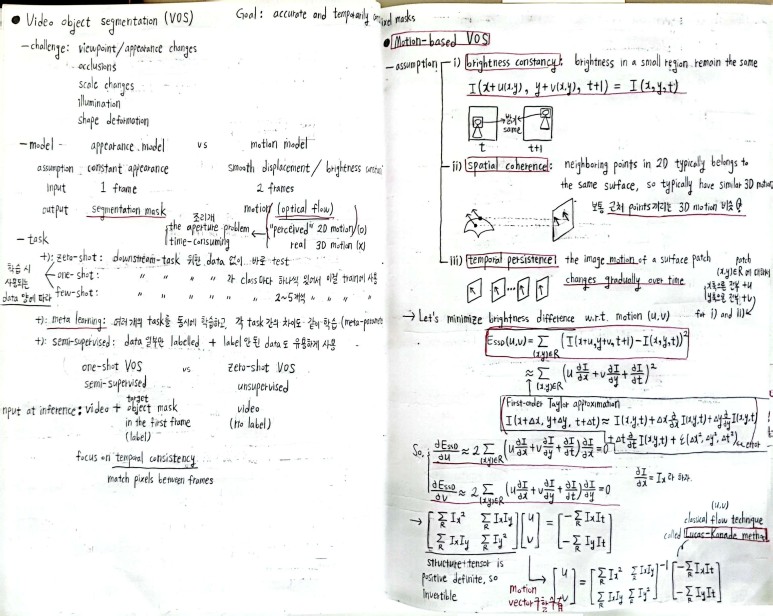 ● Video object segmentation (VOS)
Goal: accurate and temporarily
masks
- challenge: viewpoint/appearance changes
occlusions
scale changes
illumination
shape deformation
- model appearance model vs motion model
assumption constant appearance smooth displacement / brightness
input 1 frame 2 frames
output segmentation mask motion (optical flow)
조리개
the aperture problem "perceived" 2D motion (o)
time-consuming real 3D motion (x)
- task
+): zero-shot: downstream-task 위한 data 없이 바로 test
학습 시
사용되는
data 양에 따라
one-shot: " " " 가 class마다 하나씩 있어서 이를 train에 사용
few-shot: " " " 2~5개씩 " " " "
+): meta learning: 여러 개의 task를 동시에 학습하고, 각 task 간의 차이도 같이 학습
+): semi-supervised: data 일부만 labelled + label 안 된 data도 유용하게 사용
one-shot VOS vs zero-shot VOS
semi-supervised unsupervised
nput at inference: video + target object mask video
in the first frame (no label)
(label)
focus on temporal consistency
match pixels between frames
● Motion-based VOS
- assumption i) brightness constancy: brightness in a small region remain the same
I(x+u(x,y), y+v(x,y), t+1) = I(x,y,t)
밝기
same
t t+1
ii) spatial coherence: neighboring points in 2D typically belongs to
the same surface, so typically have similar 3D
보통 근처 points끼리는 3D motion 비슷
iii) temporal persistence: the image motion of a surface patch
changes gradually over time
patch
(x,y)∈R 에 대해서
x축으로 전부 +u
y축으로 전부 +v
for i) and ii)
→ Let's minimize brightness difference w.r.t. motion (u,v)
E_SSD(u,v) = Σ_(x,y)∈R (I(x+u,y+v,t+1) - I(x,y,t))²
≈ Σ_(x,y)∈R (u ∂I/∂x + v ∂I/∂y + ∂I/∂t)²
First-order Taylor approximation
I(x+Δx, y+Δy, t+Δt) ≈ I(x,y,t) + Δx ∂/∂x I(x,y,t) + Δy ∂/∂y I(x,y,t)
+ Δt ∂/∂t I(x,y,t) + ε(Δx², Δy², Δt²)
So, ∂E_SSD/∂u ≈ 2 Σ_(x,y)∈R (u ∂I/∂x + v ∂I/∂y + ∂I/∂t) ∂I/∂x = 0
∂I/∂x = Ix 라 하자.
∂E_SSD/∂v ≈ 2 Σ_(x,y)∈R (u ∂I/∂x + v ∂I/∂y + ∂I/∂t) ∂I/∂y = 0
→ [Σ_R Ix² Σ_R IxIy; Σ_R IxIy Σ_R Iy²] [u; v] = [-Σ_R IxIt; -Σ_R IyIt]
(u,v)
classical flow technique
called Lucas-Kanade method
structure tensor is
positive definite, so
invertible
→ [u; v] = [Σ_R Ix² Σ_R IxIy; Σ_R IxIy Σ_R Iy²]⁻¹ [-Σ_R IxIt; -Σ_R IyIt]
motion
vector